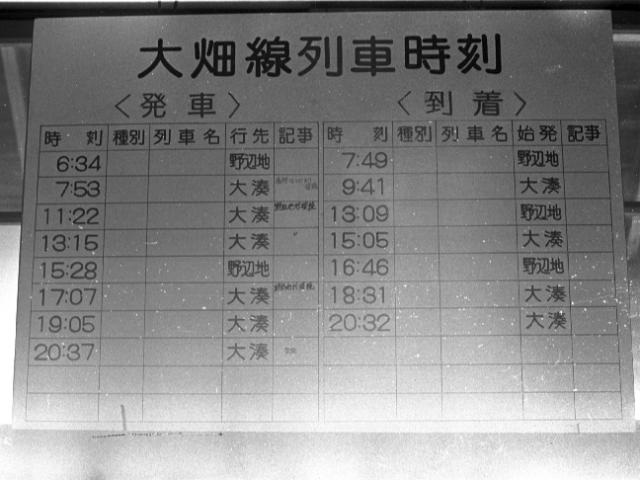 大畑線列車時刻
〈発車〉 〈到着〉
時刻 種別 列車名 行先 記事 時刻 種別 列車名 始発 記事
6:34 野辺地 7:49 野辺地
7:53 大湊 9:41 大湊
11:22 大湊 13:09 野辺地
13:15 大湊 15:05 大湊
15:28 野辺地 16:46 野辺地
17:07 大湊 18:31 大湊
19:05 大湊 20:32 大湊
20:37 大湊